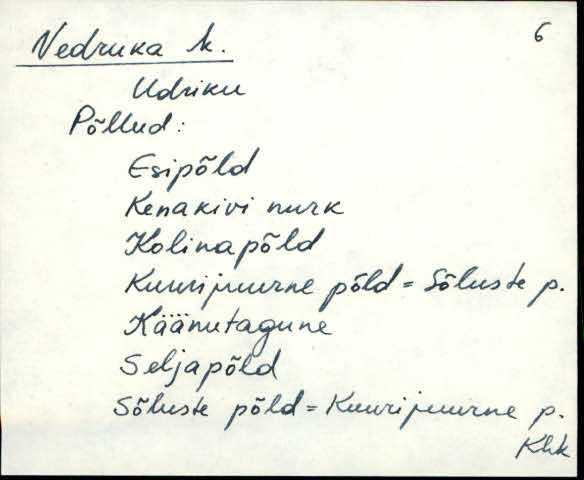 6
Vedruka k.
Udriku
Põllud:
Esipõld
Kenakivi nurk
Kolinapõld
Kuurijuurne põld = Sõluste p.
Käänutagune
Seljapõld
Sõluste põld = Kuurijuurne p.
Khk